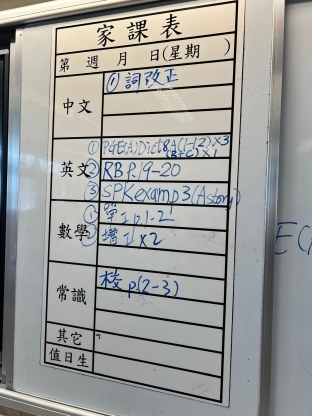 家課表
第 週 月 日(星期 )
中文
① 詞改正
英文
① PGE(A)Dict8A(1-12)×3
(B+C)×1
② RB P.19-20
③ SPK exam p3(A story)
數學
① 單工p1-2
② 增工×2
常識
校p(2-3)
其它
值日生
E(